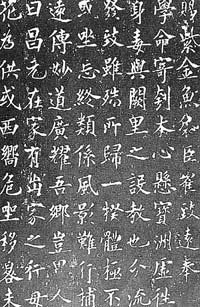 賜紫金魚袋臣崔致遠奉
學命寄刳木心懸寶洲虛往
身毒與闕里之設教也分流
發致雖殊所歸一揆體極不
或坐忘終類係風影難行捕
遠傳妙道廣耀吾鄉豈異人
曰昌元在家有出家之行母
花為供或西嚮危坐移晷未